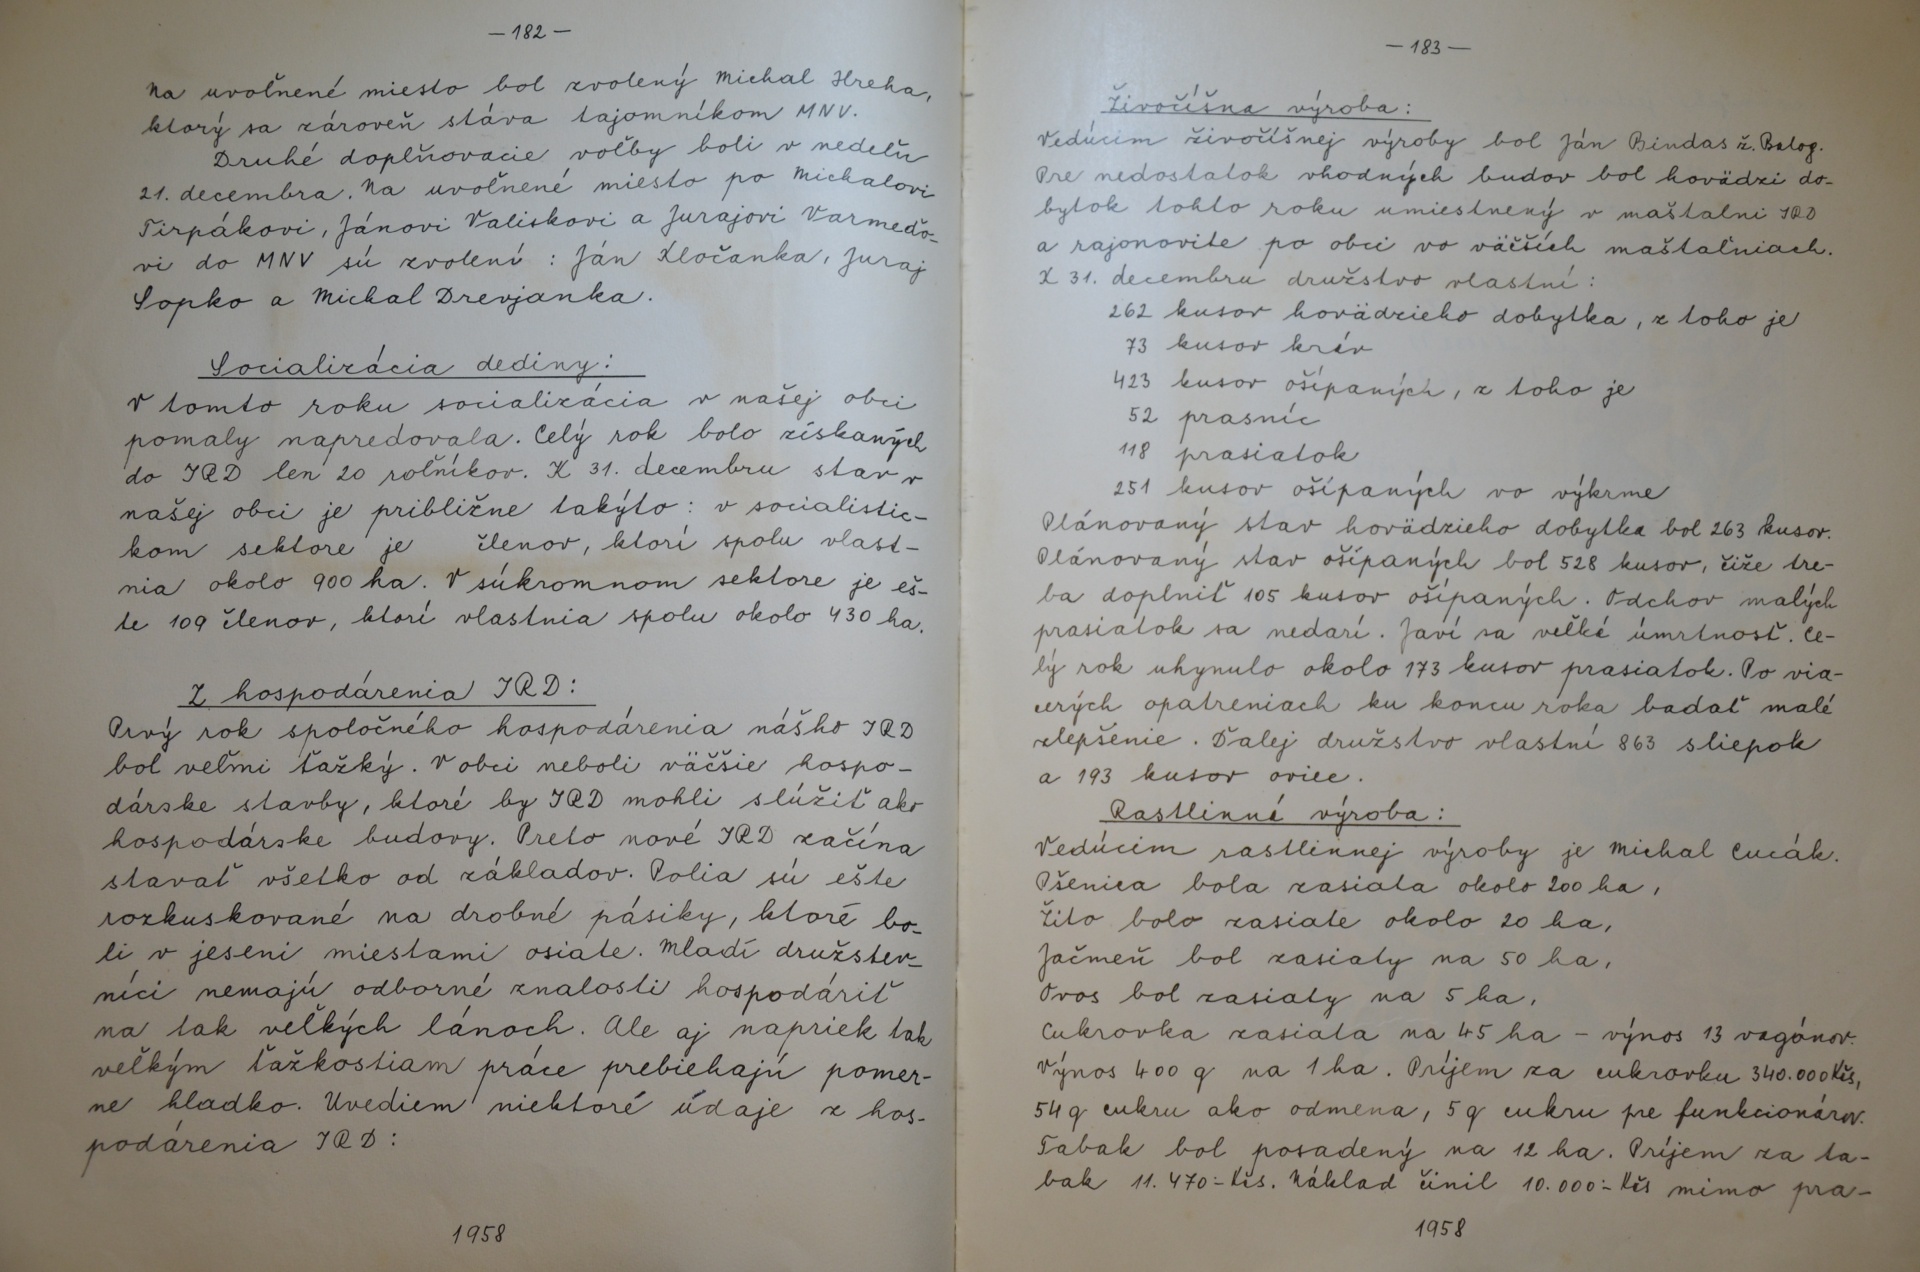 — 182 —
Na uvoľnené miesto bol zvolený Michal Hreha,
ktorý sa zároveň stáva tajomníkom MNV.
Druhé doplňovacie voľby boli v nedeľu
21. decembra. Na uvoľnené miesto po Michalovi
Tirpákovi, Jánovi Valiskovi a Jurajovi Varmeďo-
vi do MNV sú zvolení : Ján Kločanka, Juraj
Sopko a Michal Drevjanka.
Socializácia dediny:
V tomto roku socializácia v našej obci
pomaly napredovala. Celý rok bolo získaných
do JRD len 20 roľníkov. K 31. decembru stav v
našej obci je približne takýto: v socialistic-
kom sektore je členov, ktorí spolu vlast-
nia okolo 900 ha. V súkromnom sektore je eš-
te 109 členov, ktorí vlastnia spolu okolo 430 ha.
Z hospodárenia JRD:
Prvý rok spoločného hospodárenia nášho JRD
bol veľmi ťažký. V obci neboli väčšie hospo-
dárske stavby, ktoré by JRD mohli slúžiť ako
hospodárske budovy. Preto nové JRD začína
stavať všetko od základov. Polia sú ešte
rozkuskované na drobné pásiky, ktoré bo-
li v jeseni miestami osiate. Mladí družstev-
níci nemajú odborné znalosti hospodáriť
na tak veľkých lánoch. Ale aj napriek tak
veľkým ťažkostiam práce prebiehajú pomer-
ne hladko. Uvediem niektoré údaje z hos-
podárenia JRD:
1958
— 183 —
Živočíšna výroba:
Vedúcim živočíšnej výroby bol Ján Bindas ž. Balog.
Pre nedostatok vhodných budov bol hovädzí do-
bytok tohto roku umiestnený v maštalni JRD
a rajonovite po obci vo väčších maštaľniach.
K 31. decembru družstvo vlastní:
262 kusov hovädzieho dobytka, z toho je
73 kusov kráv
423 kusov ošípaných, z toho je
52 prasníc
118 prasiatok
251 kusov ošípaných vo výkrme
Plánovaný stav hovädzieho dobytka bol 263 kusov.
Plánovaný stav ošípaných bol 528 kusov, čiže tre-
ba doplniť 105 kusov ošípaných. Odchov malých
prasiatok sa nedarí. Javí sa veľká úmrtnosť. Ce-
lý rok uhynulo okolo 173 kusov prasiatok. Po via-
cerých opatreniach ku koncu roka badať malé
zlepšenie. Ďalej družstvo vlastní 863 sliepok
a 193 kusov oviec.
Rastlinná výroba:
Vedúcim rastlinnej výroby je Michal Cucák.
Pšenica bola zasiata okolo 200 ha,
Žito bolo zasiate okolo 20 ha,
Jačmeň bol zasiaty na 50 ha,
Ovos bol zasiaty na 5 ha,
Cukrovka zasiata na 45 ha – výnos 13 vagónov.
Výnos 400 q na 1 ha. Príjem za cukrovku 340.000 Kčs,
54 q cukru ako odmena, 5 q cukru pre funkcionárov.
Tabak bol posadený na 12 ha. Príjem za ta-
bak 11.470:- Kčs. Náklad činil 10.000:- Kčs mimo pra-
1958